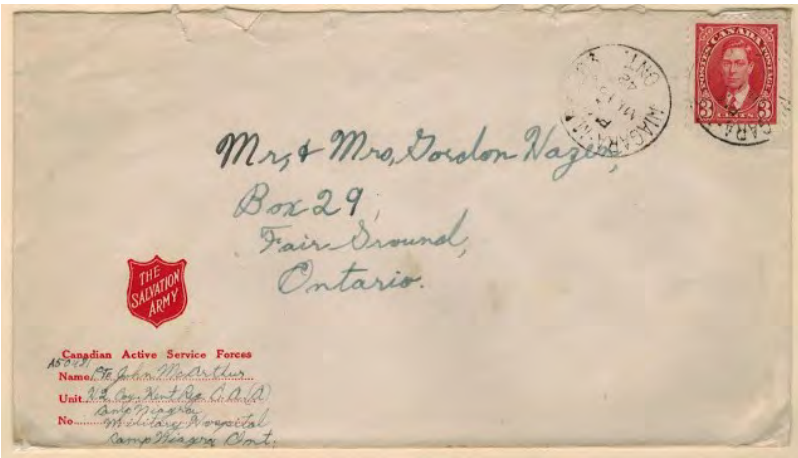 POSTES CANADA POSTAGE
3 CENTS 3
NIAGARA
PM
42
ONT.
GARA
Mr, & Mrs, Gordon Hazen,
Box 29,
Fair Ground,
Ontario.
THE
SALVATION
ARMY
Canadian Active Service Forces
A50491
Name Pte John McArthur
Unit Coy. Kent Reg. C. A. (A)
Camp Niagra
No. Military Hospital
Camp Niagra Ont.